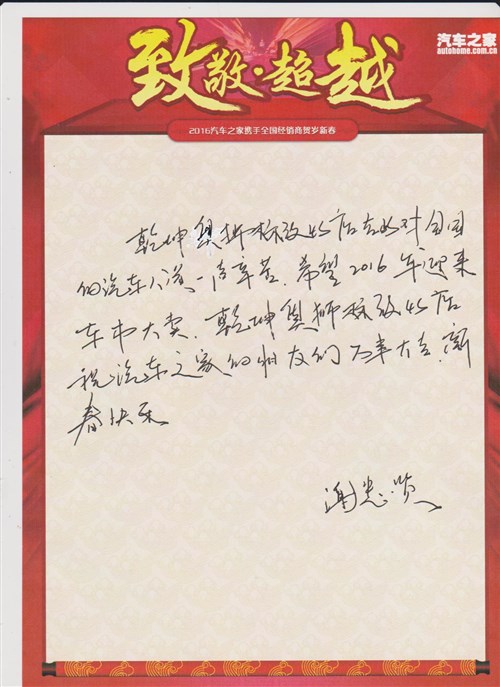 汽车之家
autohome.com.cn
致敬·超越
2016汽车之家携手全国经销商贺岁新春
乾坤奥狮标致4S店在此对全国
的汽车人道一声辛苦.希望2016年迎来
车市大卖.乾坤奥狮标致4S店
祝汽车之家的朋友们万事大吉.新
春快乐